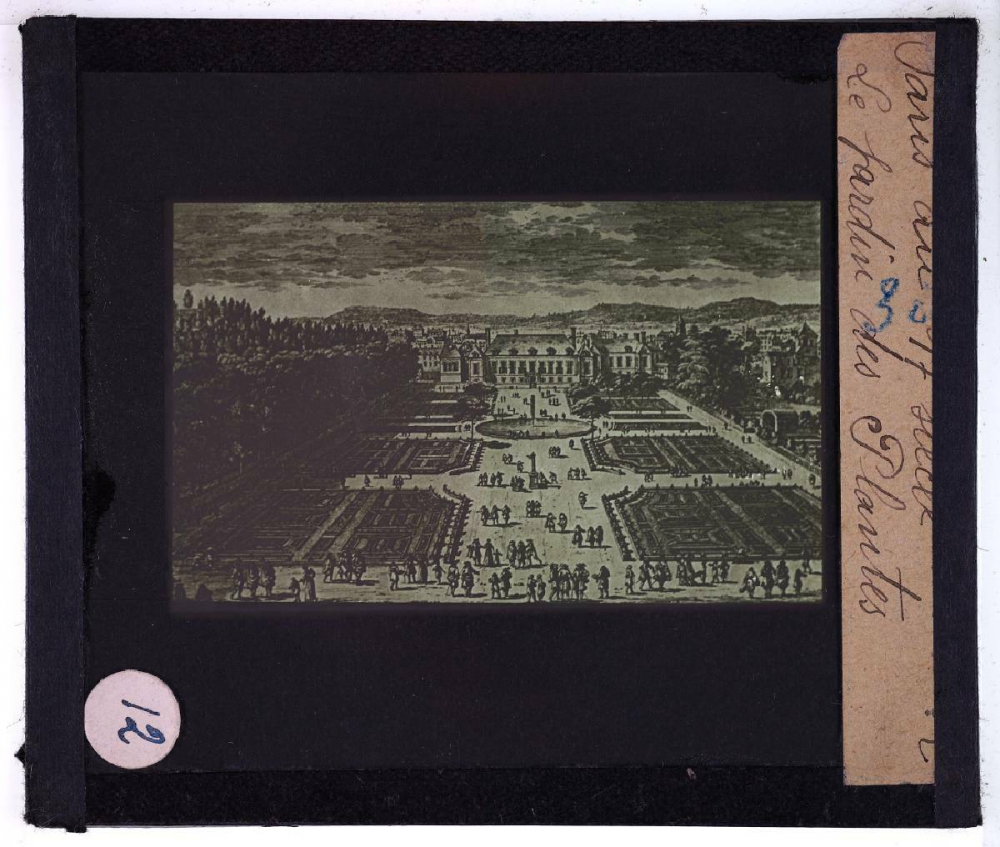 Paris au 17e siècle
Le Jardin des Plantes
12